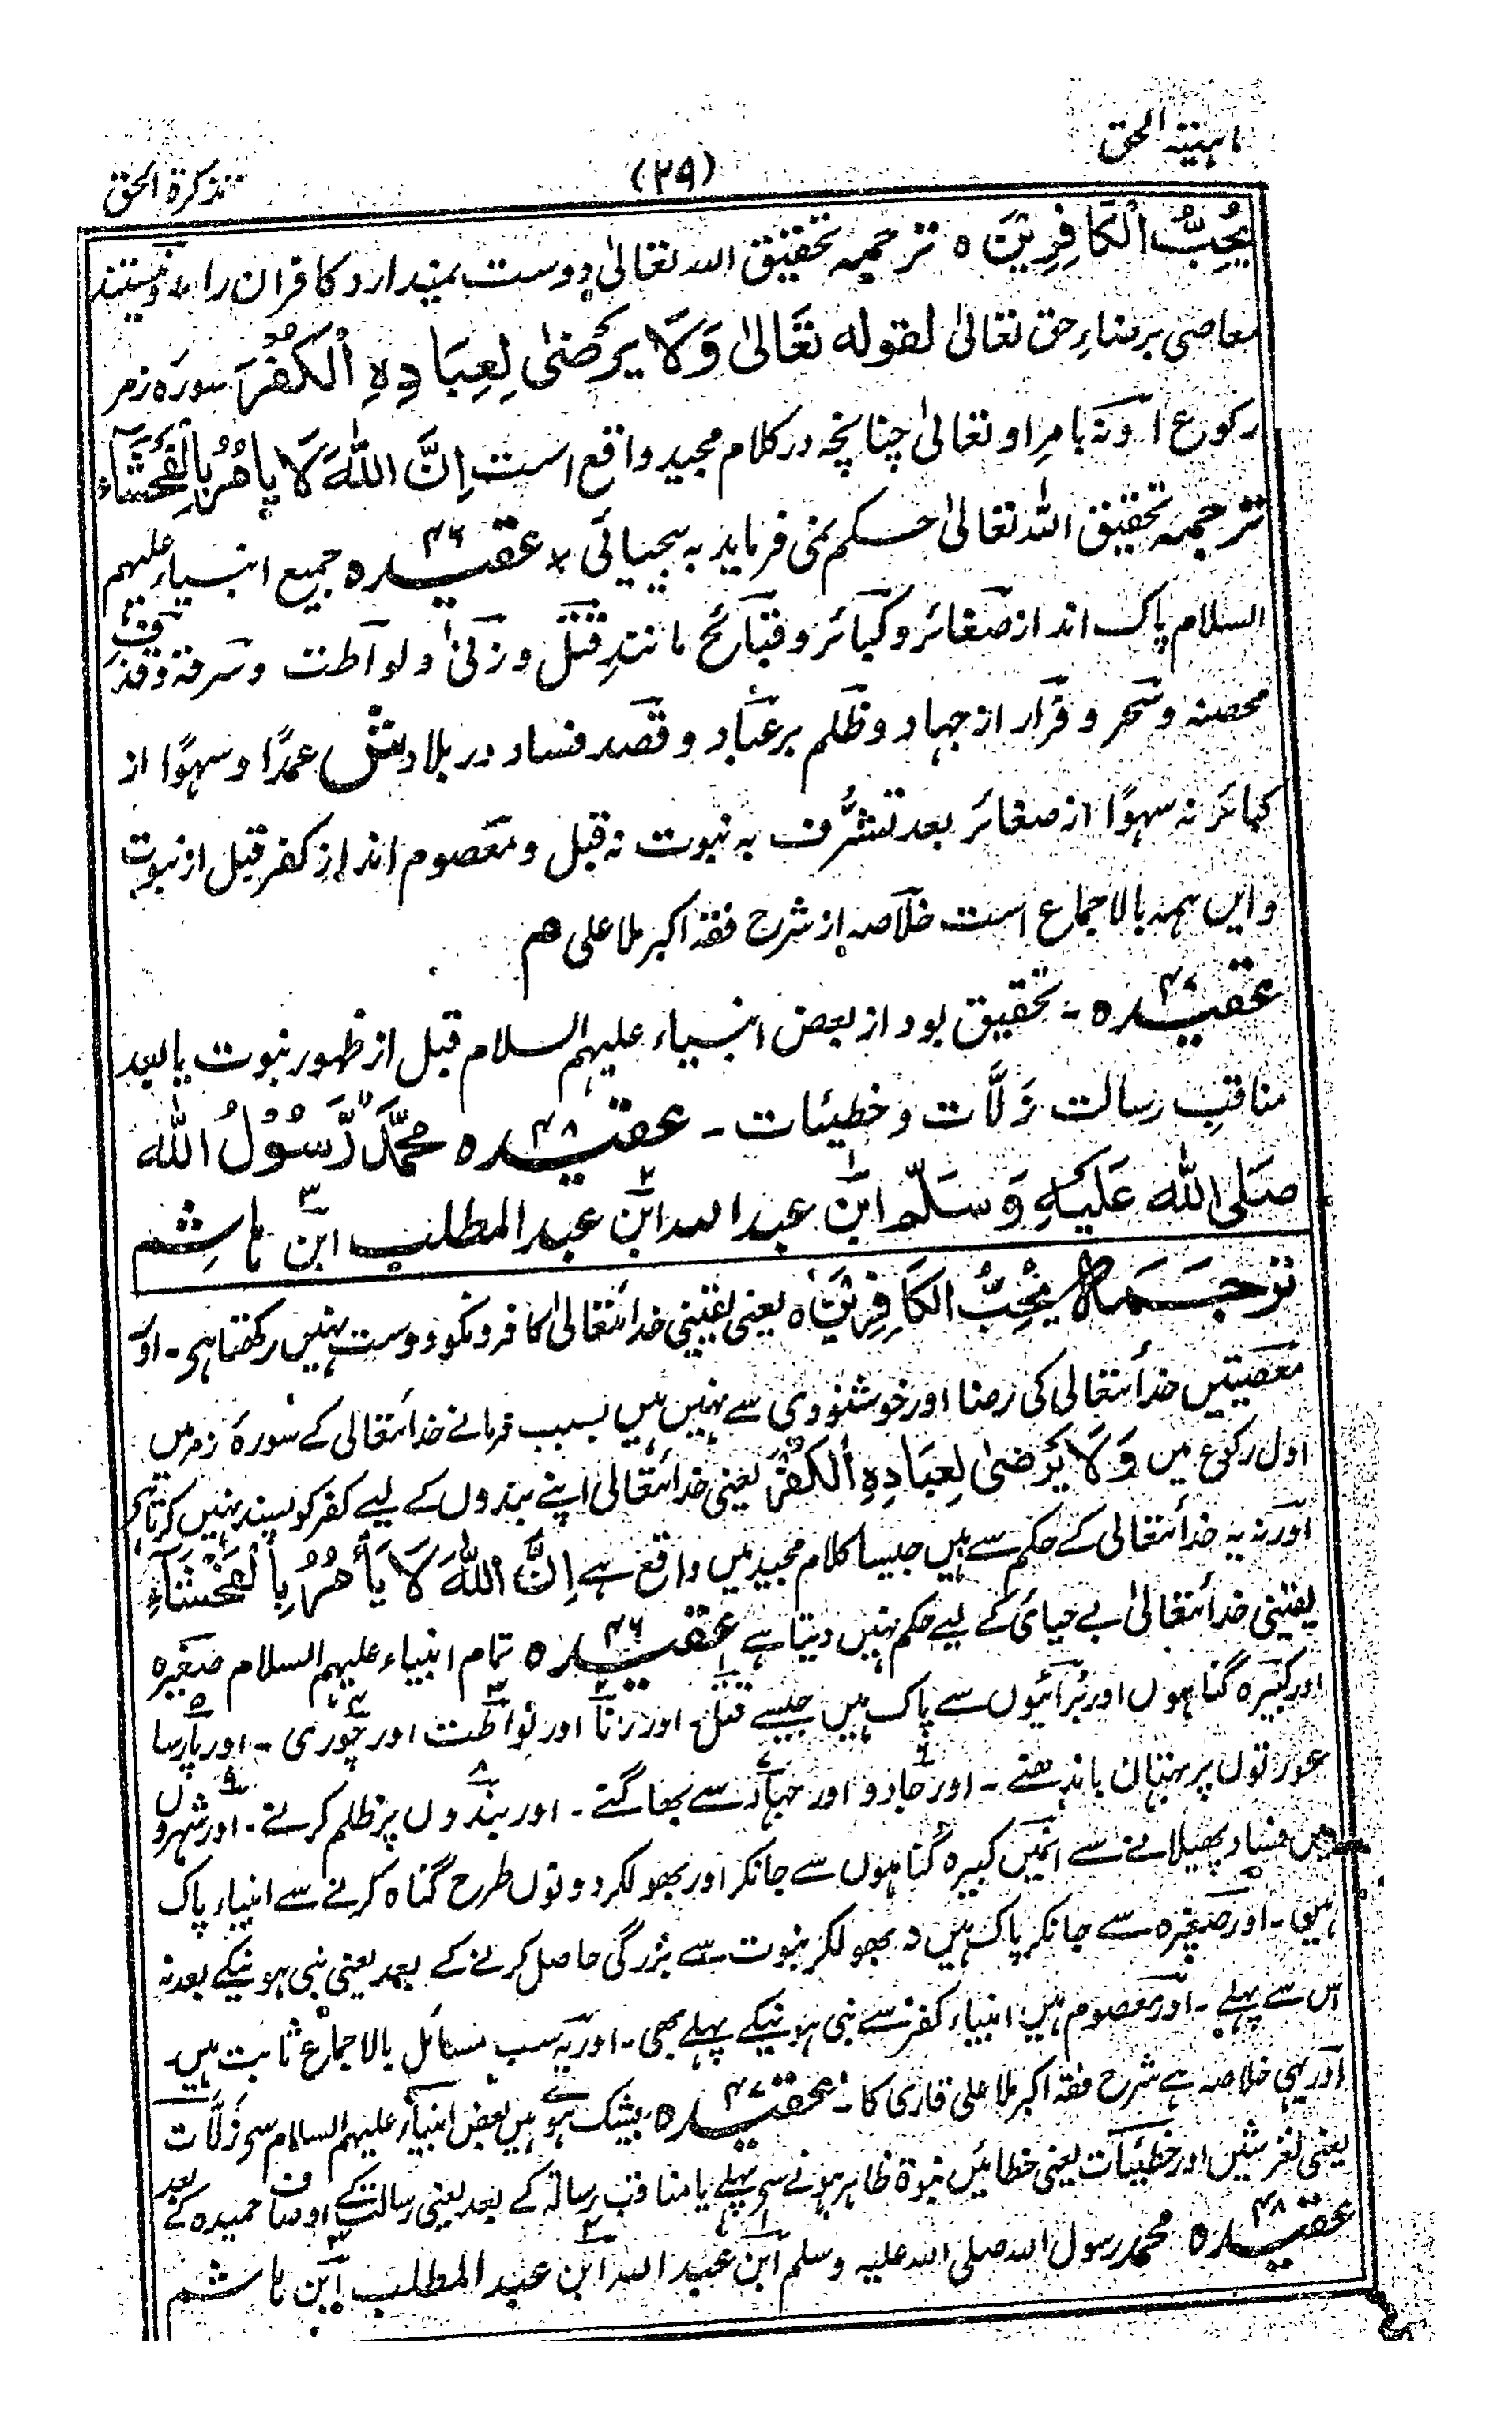 ماہیتہ الحق
(۲۹)
تذکرۃ الحق
یُحِبُّ الْکَافِرِیْنَ ہ ترجمہ تحقیق اللہ تعالیٰ دوست نمیدارد کافران را ۔ و نیستند
معاصی برضاءِ حق تعالیٰ لقولہ تَعَالیٰ وَلَا یَرْضیٰ لِعِبَادِہِ الْکُفْرَ سورہ زمر
رکوع ا وَنہ بامرِ او تعالیٰ چنانچہ در کلام مجید واقع است اِنَّ اللّٰہَ لَا یَامُرُ بِالْفَحْشَآءِ
ترجمہ تحقیق اللہ تعالیٰ حکم نمی فرماید بہ بیحیائی × عقیدہ ۴۶ جمیع انبیاء علیہم
السلام پاک اند از صغائر و کبائر و قبائح مانندِ قتل و زنیٰ و لواطت و سرقہ و قذفِ
محصنہ و سحر و فرار از جہاد و ظلم بر عباد و قصد فساد در بلادش عمدًا و سہوًا از
کبائر نہ سہوًا از صغائر بعد تشرُّف بہ نبوت نہ قبل و معصوم اند از کفر قبل از نبوت
و این ہمہ بالاجماع است خلاصہ از شرح فقہ اکبر ملا علی ھم
عقیدہ ۴۷ ۔ تحقیق بود از بعض انبیاء علیہم السلام قبل از ظہور نبوت یا بعد
مناقبِ رسالت زلَّات و خطیئات ۔ عقیدہ ۴۸ محمَّدٌ رَّسُوْلُ اللّٰہ
صَلی اللّٰہ عَلَیْہِ وَسَلَّم ابن عبد اللہ ابن عبد المطلب ابن ہاشم
ترجمہ یُحِبُّ الکَافِرِیْنَ ہ یعنی یقینی خدائتعالیٰ کافرونکو دوست نہیں رکھتا ہی ۔ اور
معصیتیں خدائتعالی کی رضا اور خوشنودی سے نہیں ہیں بسبب فرمانے خدائتعالی کے سورۂ زمر میں
اول رکوع میں وَلَا یَرْضیٰ لِعِبَادِہِ الْکُفْرَ یعنی خدائتعالی اپنے بندوں کے لیے کفر کو پسند نہیں کرتا ہی
اور نہ یہ خدائتعالی کے حکم سے ہیں جیسا کلام مجید میں واقع ہے اِنَّ اللّٰہَ لَا یَأْمُرُ بِالْفَحْشَآءِ
یقینی خدائتعالیٰ بے حیائی کے لیے حکم نہیں دیتا ہے عقیدہ ۴۶ تمام انبیاء علیہم السلام صغیرہ
اور کبیرہ گناہوں اور بُرائیوں سے پاک ہیں جیسے قتل ۔ اور زنا اور لواطت اور چوری ۔ اور پارسا
عورتوں پر بہتان باندھنے ۔ اور جادو اور جہاد سے بھاگنے ۔ اور بندوں پر ظلم کرنے ۔ اور شہروں
میں فساد پھیلانے سے انھیں کبیرہ گناہوں سے جانکر اور بھولکر دونوں طرح گناہ کرنے سے انبیاء پاک
ہیں ۔ اور صغیرہ سے جانکر پاک ہیں نہ بھولکر نبوت سے بزرگی حاصل کرنے کے بعد یعنی نبی ہونیکے بعد نہ
اس سے پہلے ۔ اور معصوم ہیں انبیاء کفر سے نبی ہونیکے پہلے بھی ۔ اور یہ سب مسائل بالاجماع ثابت ہیں۔
اور یہی خلاصہ ہے شرح فقہ اکبر ملا علی قاری کا ۔ عقیدہ ۴۷ بیشک ہوئے ہیں بعض انبیاء علیہم السلام سے زلَّات
یعنی لغزشیں اور خطیئات یعنی خطائیں نبوۃ ظاہر ہونے سے پہلے یا مناقب رسالۃ کے بعد یعنی رسالت کے اوصاف حمیدہ کے بعد
عقیدہ ۴۸ محمد رسول اللہ صلی اللہ علیہ وسلم ابن عبد اللہ ابن عبد المطلب ابن ہاشم